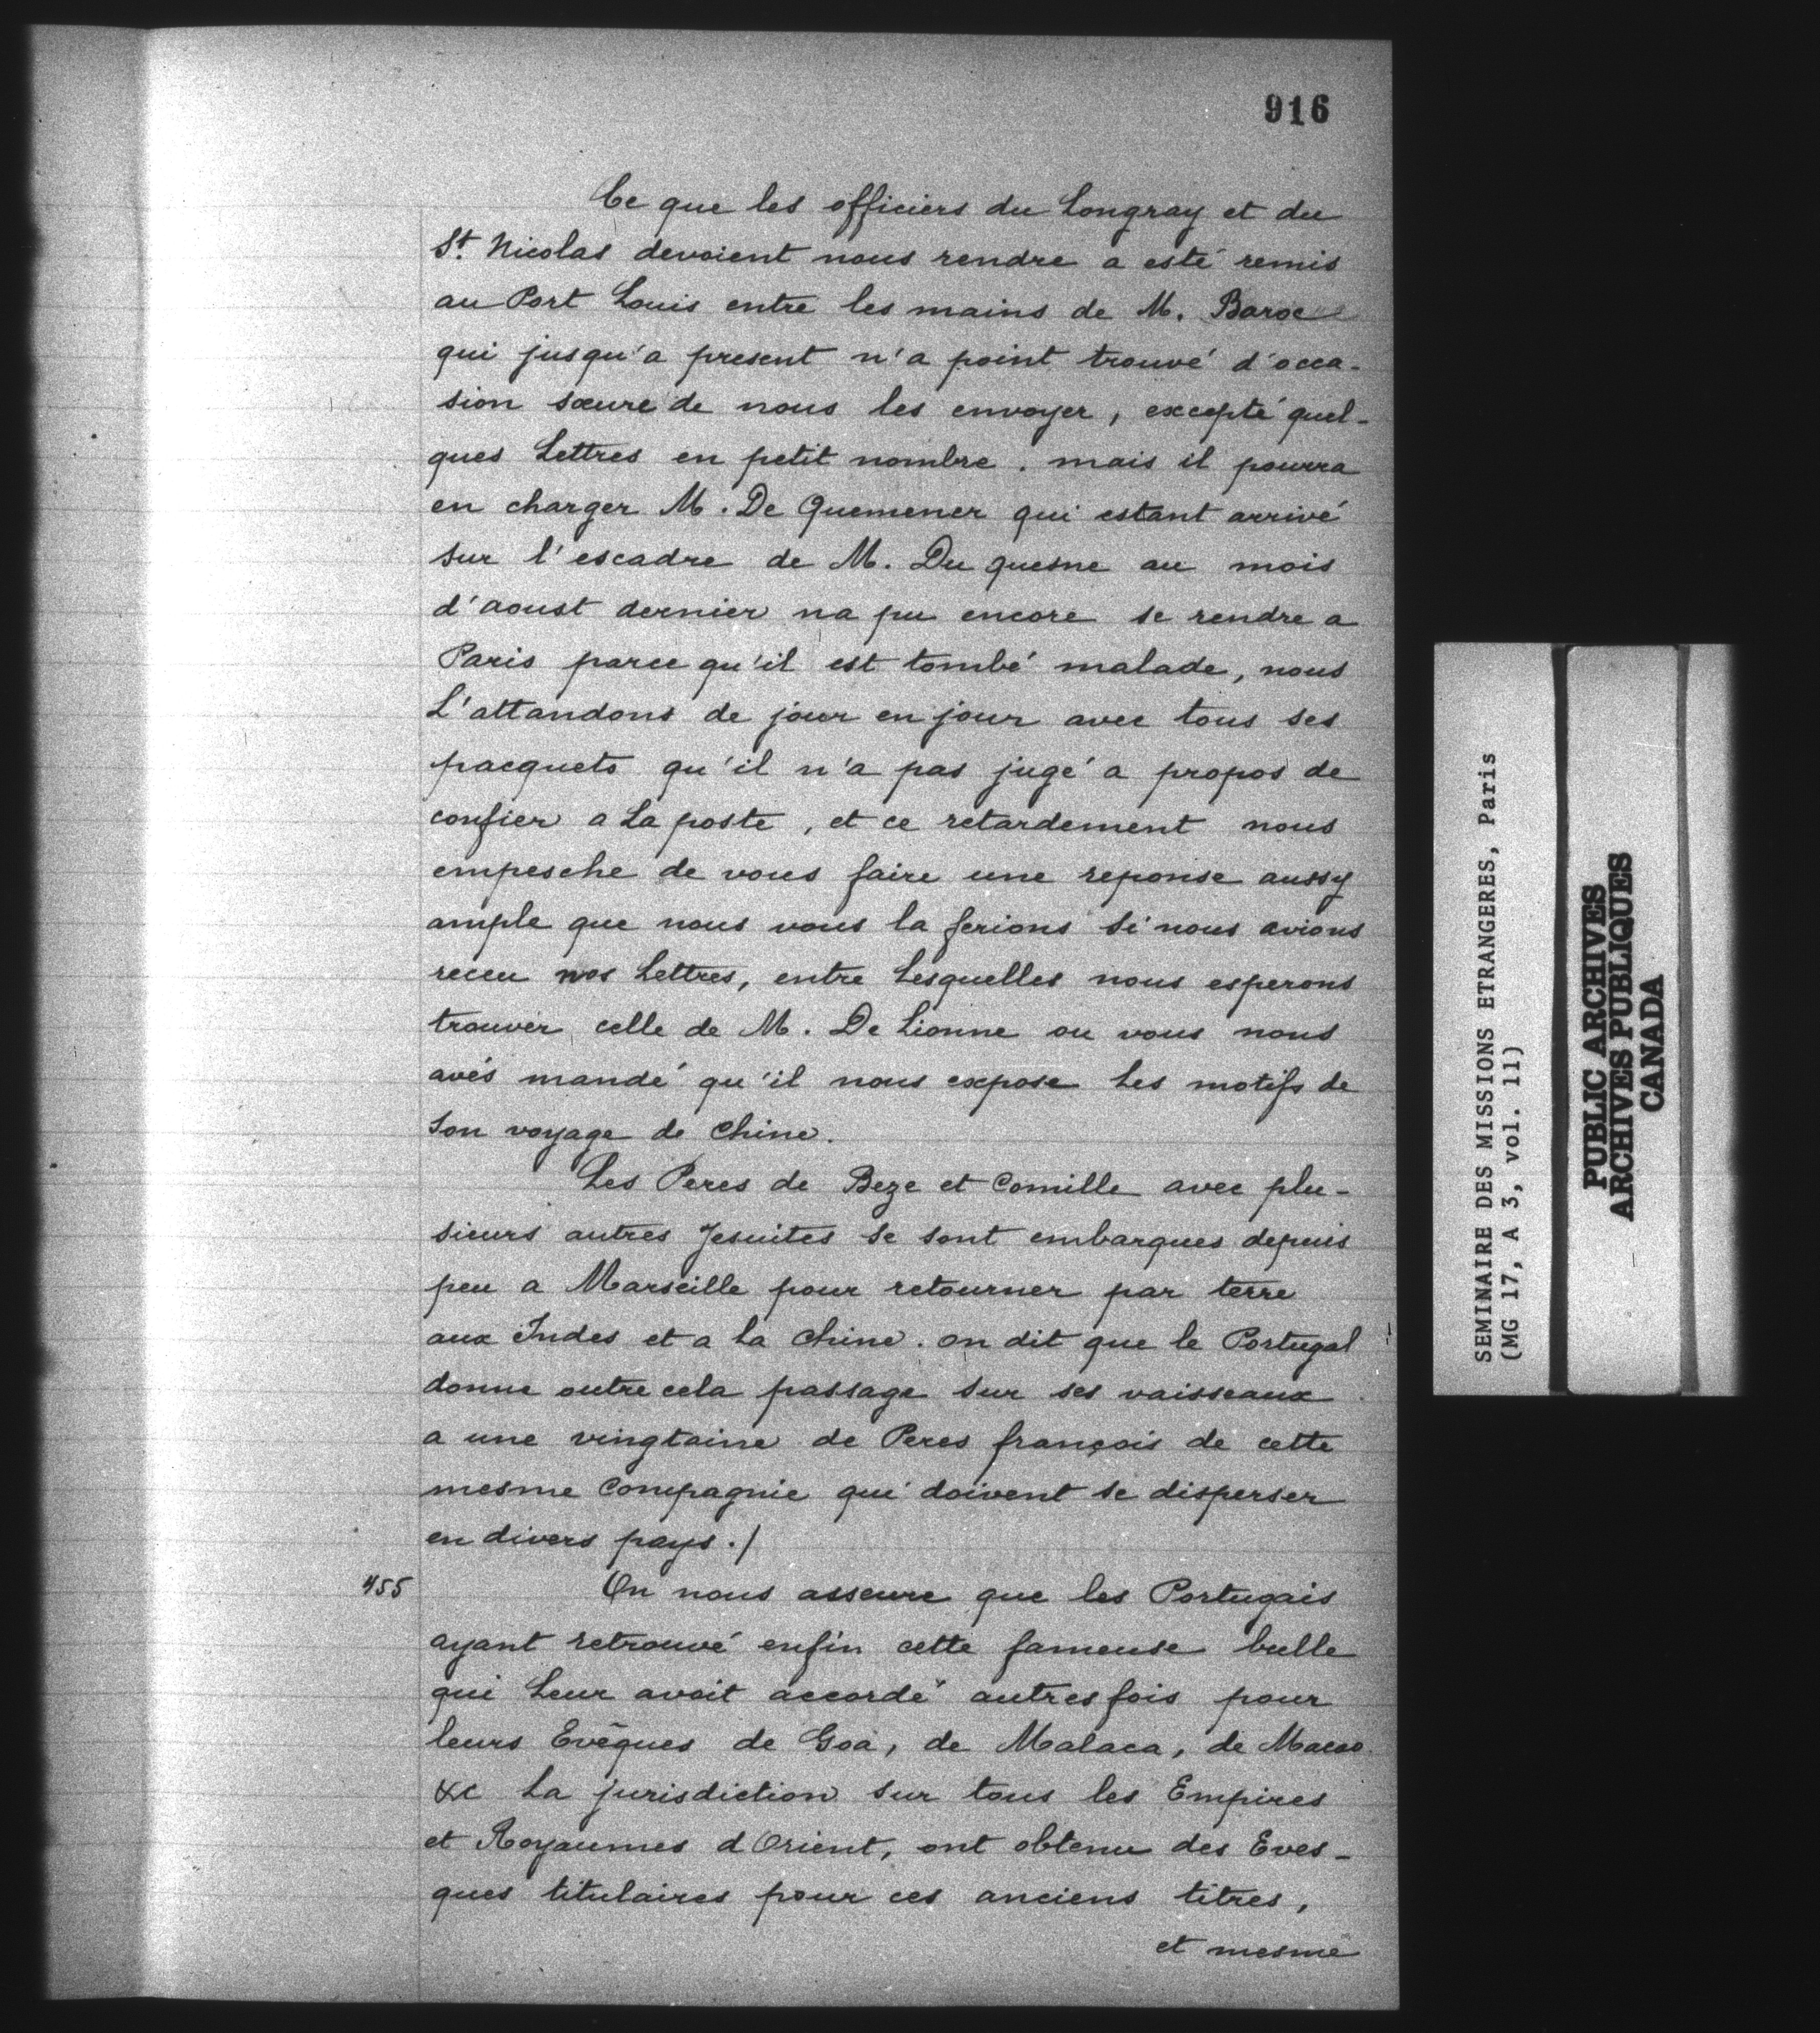 916
Ce que les officiers du Longray et du
St. Nicolas devoient nous rendre a esté remis
au Port Louis entre les mains de M. Baroe
qui jusqu'a present n'a point trouvé d'occa-
sion sœure de nous les envoyer, excepté quel-
ques Lettres en petit nombre. mais il pourra
en charger M. De Quemener qui estant arrivé
sur l'escadre de M. Du quesne au mois
d'aoust dernier na pu encore se rendre a
Paris parce qu'il est tombé malade, nous
L'attandons de jour en jour avec tous ses
pacquets qu'il n'a pas jugé a propos de
confier a La poste, et ce retardement nous
empesche de vous faire une reponse aussy
ample que nous vous la ferions si nous avions
receu nos Lettres, entre Lesquelles nous esperons
trouver celle de M. De Lionne ou vous nous
avés mandé qu'il nous expose Les motifs de
Son voyage de Chine.
Les Peres de Beze et Comille avec plu-
sieurs autres Jesuites se sont embarques depuis
peu a Marseille pour retourner par terre
aux Indes et a La Chine. on dit que le Portugal
donne outre cela passage sur ses vaisseaux
a une vingtaine de Peres françois de cette
mesme Compagnie qui doivent se disperser
en divers pays./
455
On nous asseure que les Portugais
ayant retrouvé enfin cette fameuse bulle
qui Leur avoit accordé autresfois pour
leurs Evêques de Goa, de Malaca, de Macao
&c La jurisdiction sur tous les Empires
et Royaumes d'Orient, ont obtenu des Eves-
ques titulaires pour ces anciens titres,
et mesme
SEMINAIRE DES MISSIONS ETRANGERES, Paris
(MG 17, A 3, vol. 11)
PUBLIC ARCHIVES
ARCHIVES PUBLIQUES
CANADA